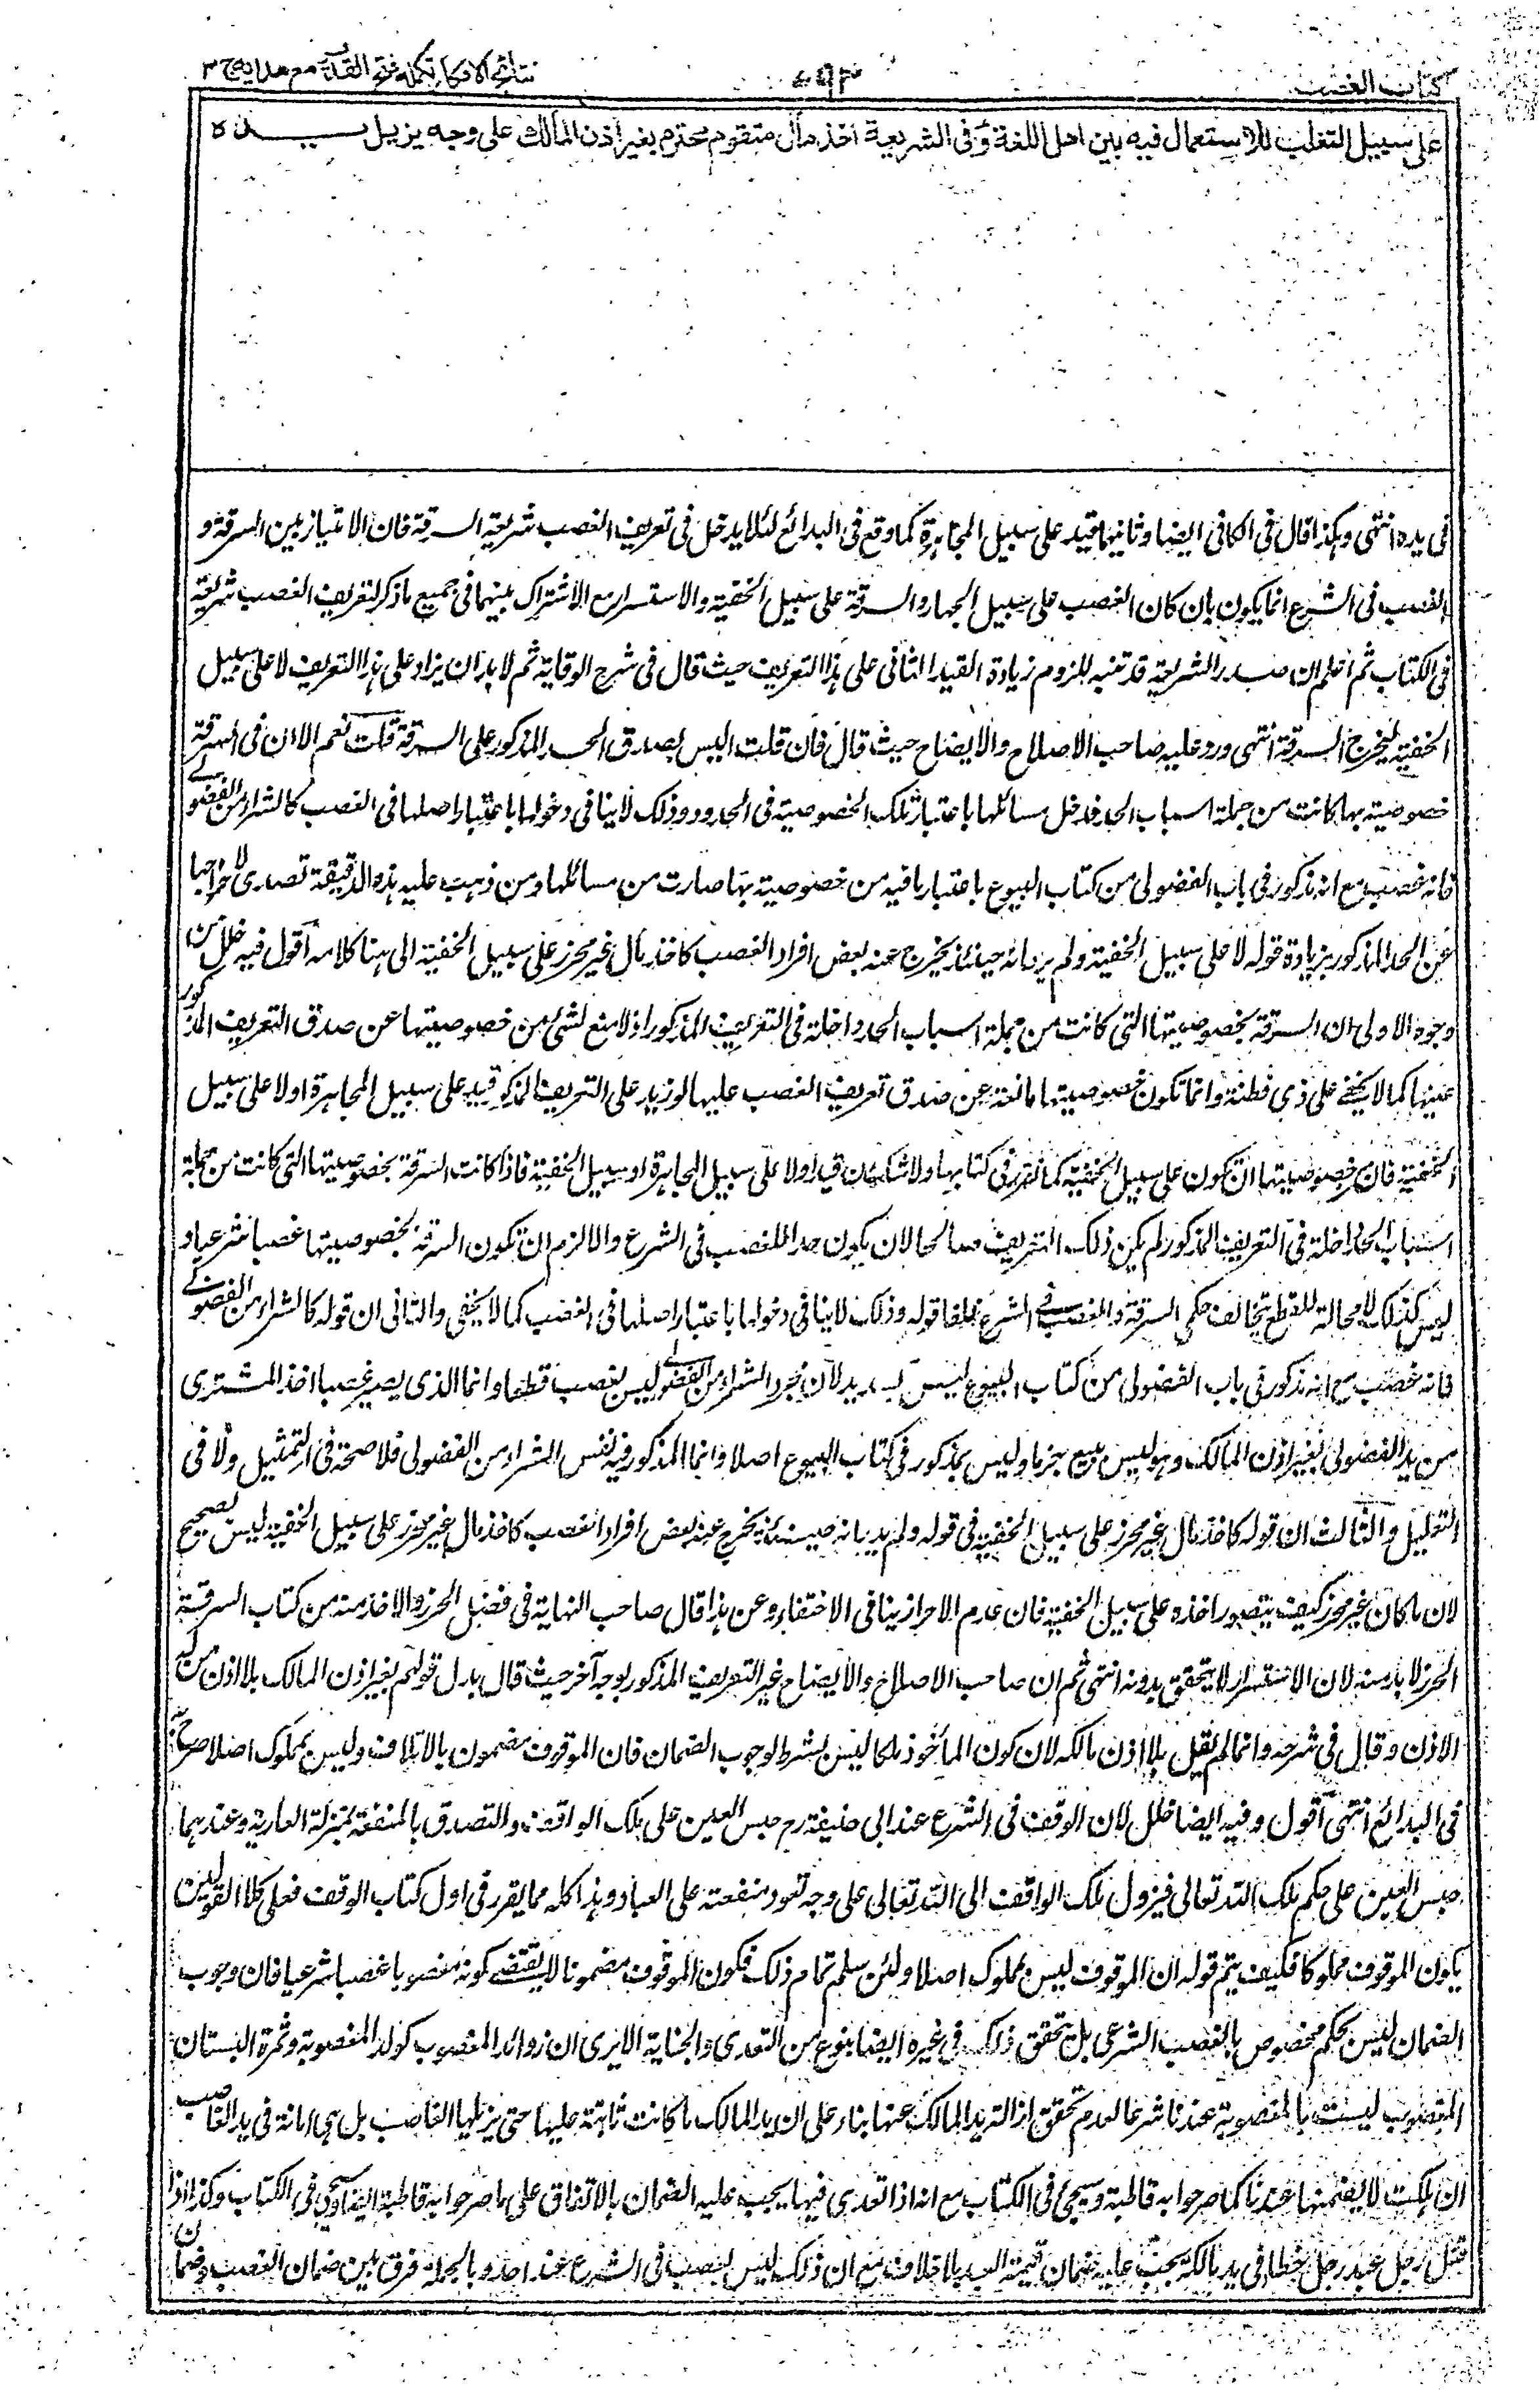 كتاب الغصب
٧٩٣
نتائج الافكار تكملة فتح القدير مع هدايه ج ٣
على سبيل التغلب للاستعمال فيه بين اهل اللغة وفى الشريعة اخذ مال متقوم محترم بغير اذن المالك على وجه يزيل يده
فى يده انتهى وہكذا قال فى الكافى ايضا وثانيها قيد على سبيل المجاہرة كما وقع فى البدائع لئلا يدخل فى تعريف الغصب شريعة السرقة فان الامتياز بين السرقة و
الغصب فى الشرع انما يكون بان كان الغصب على سبيل الجہار والسرقة على سبيل الخفية والاستسرار مع الاشتراك بينہما فى جميع ما ذكر لتعريف الغصب شريعة
فى الكتاب ثم اعلم ان صدر الشريعة قد تنبه للزوم زيادة القيد الثانى على ہذا التعريف حيث قال فى شرح الوقاية ثم لا بد ان يزاد على ہذا التعريف لا على سبيل
الخفية ليخرج السرقة انتہى ورد عليه صاحب الاصلاح والايضاح حيث قال فان قلت اليس يصدق الحد المذكور على السرقة قلت نعم الا ان فى السرقة
خصوصية بہا كانت من جملة اسباب الحد فدخل مسائلہا باعتبار تلك الخصوصية فى الحدود وذلك لا ينافى دخولہا باعتبار اصلہا فى الغصب كالشراء من الفضولے
فانه غصب مع انه مذكور فى باب الفضولى من كتاب البيوع باعتبار ما فيه من خصوصية بہا صارت من مسائلہا ومن ذہب عليه ہذه الدقيقة تصدى لاخراجہا
عن الحد المذكور بزيادة قوله لا على سبيل الخفية ولم يدر انه حينئذ يخرج عنه بعض افراد الغصب كاخذ مال غير محرز على سبيل الخفية الى ہنا كلامه اقول فيه خلل من
وجوه الاولى ان السرقة بخصوصيتہا التى كانت من جملة اسباب الحد داخلة فى التعريف المذكور اذ لا منع لشئ من خصوصيتہا عن صدق التعريف المذكور
عليہا كما لا يخفے على ذى فطنة وانما تكون خصوصيتہا مانعة عن صدق تعريف الغصب عليہا لو زيد على التعريف المذكور قيد على سبيل المجاہرة او لا على سبيل
الخفية فان خصوصيتہا ان تكون على سبيل الخفية كما تقرر فى كتابہا ولا شك ان قيد اولا على سبيل المجاہرة او سبيل الخفية فاذا كانت السرقة بخصوصيتہا التى كانت من جملة
اسباب الحد داخلة فى التعريف المذكور لم يكن ذلك التعريف صالحا لان يكون حدا للغصب فى الشرع والا لزم ان تكون السرقة بخصوصيتہا غصبا شرعيا و
ليس كذلك لا محالة للقطع بتخالف حكمى السرقة والغصب فے الشرع فلغا قوله وذلك لا ينافى دخولہا باعتبار اصلہا فى الغصب كما لا يخفى والثانى ان قوله كالشراء من الفضولے
فانه غصب مع انه مذكور فى باب الفضولى من كتاب البيوع ليس بسديد لان مجرد الشراء من الفضولے ليس بغصب قطعا وانما الذى يصير غصبا اخذ المشترى
من يد الفضولى بغير اذن المالك وہو ليس ببيع جزما وليس بمذكور فى كتاب البيوع اصلا وانما المذكور فيه نفس الشراء من الفضولى فلا صحة فى التمثيل ولا فى
التعليل والثالث ان قوله كاخذ مال غير محرز على سبيل الخفية فى قوله ولم يدر بانه حينئذ يخرج عنه بعض افراد الغصب كاخذ مال غير محرز على سبيل الخفية ليس بصحيح
لان ما كان غير محرز كيف يتصور اخذه على سبيل الخفية فان عدم الاحراز ينافى الاختفاء وعن ہذا قال صاحب النہاية فى فصل الحرز والاخذ منه من كتاب السرقة
الحرز لا بد منه لان الاستسرار لا يتحقق بدونه انتہى ثم ان صاحب الاصلاح والايضاح غير التعريف المذكور بوجه آخر حيث قال بدل قولہم بغير اذن المالك بلا اذن من له
الاذن وقال فى شرحه وانما لم نقل بلا اذن مالكه لان كون المأخوذ ملكا ليس بشرط لوجوب الضمان فان الموقوف مضمون بالاتلاف وليس بمملوك اصلا صرح به
فى البدائع انتہى اقول وفيه ايضا خلل لان الوقف فى الشرع عند ابى حنيفة رح حبس العين على ملك الواقف والتصدق بالمنفعة بمنزلة العارية وعندہما
حبس العين على حكم ملك اللہ تعالى فيزول ملك الواقف الى اللہ تعالى على وجه تعود منفعته على العباد وہذا كله مما يقرر فى اول كتاب الوقف فعلى كلا القولين
يكون الموقوف مملوكا فكيف يتم قوله ان الموقوف ليس بمملوك اصلا ولئن سلم تمام ذلك فكون الموقوف مضمونا لا يقتضے كونه مغصوبا غصبا شرعيا فان وجوب
الضمان ليس بحكم مخصوص بالغصب الشرعى بل يتحقق ذلك فى غيره ايضا بنوع من التعدى والجناية الا يرى ان زوائد المغصوب كولد المغصوبة وثمرة البستان
المغصوب ليست بالمغصوبة عندنا شرعا لعدم تحقق ازالة يد المالك عنہا بناء على ان يد المالك ما كانت ثابتة عليہا حتى يزيلہا الغاصب بل ہى امانة فى يد الغاصب
ان ہلكت لا يضمنہا عندنا كما صرحوا به قاطبة وسيجئ فى الكتاب مع انه اذا تعدى فيہا يجب عليه الضمان بالاتفاق على ما صرحوا به قاطبة ايضا وسيجئ فى الكتاب وكذا اذا
قتل رجل عبد رجل خطأ فى يد مالكه يجب عليه ضمان قيمة العبد بلا خلاف مع ان ذلك ليس بغصب فى الشرع عند احد وبالجملة فرق بين ضمان الغصب وضمان